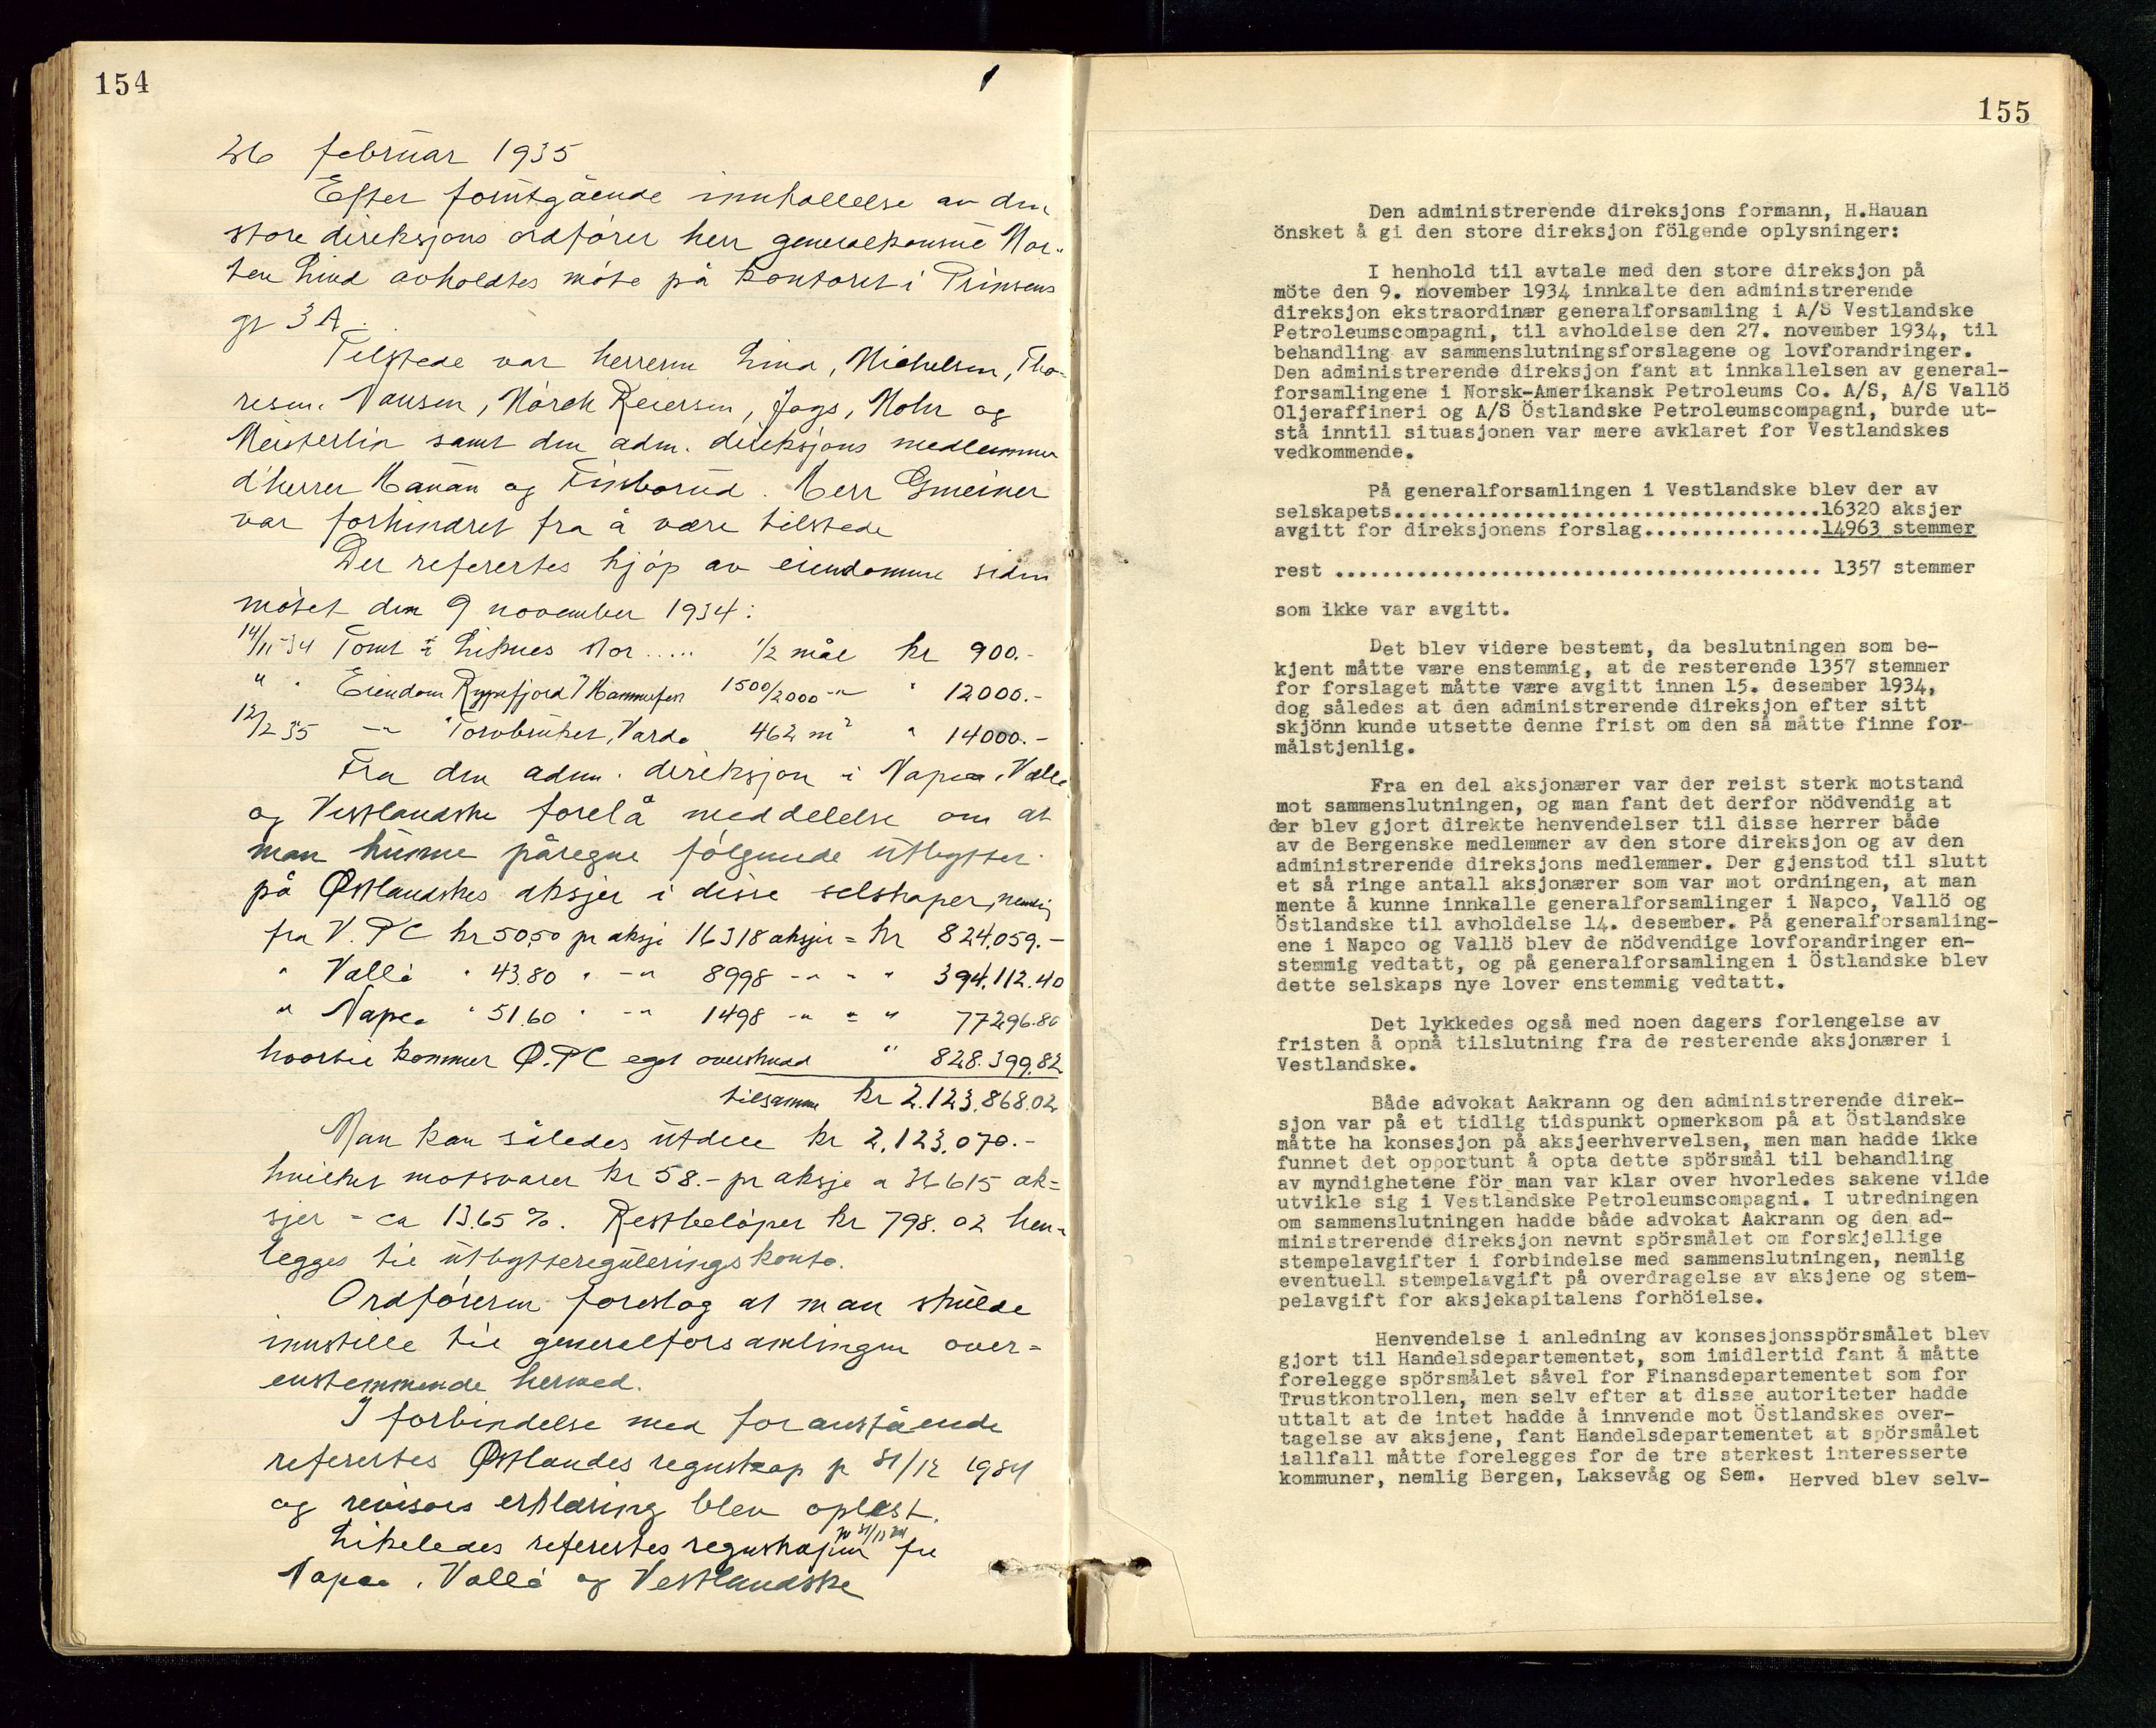 154
26 februar 1935
Efter forutgående innkallelse av den
store direksjons ordfører herr generalkonsul Mor-
ten Lind avholdtes møte på kontoret i Prinsens
gt 3A.
Tilstede var herrerne Lind, Michelsen, Tho-
resen, Nansen, Mørch Reiersen, Jags, Mohr og
Meisterlin samt den adm. direksjons medlemmer
d'herrer Hauan og Finborud. Herr Gmeiner
var forhindret fra å være tilstede
Der refertes kjøp av eiendomme siden
møtet den 9 november 1934:
14/11-34 Tomt i Liknes stor ..... 1/2 mål kr 900.-
" " Eiendom Rypefjord Hammerfest 1500/2000 -"- " 12000.-
12/2 35 -"- Torvbruket, Vardø 462 m2 " 14000.-
Fra den adm. direksjon i Napco, Vallø
og Vestlandske forelå meddelelse om at
man kunne påregne følgende utbytter
på Østlandskes aksjer i disse selskaper, nemlig
fra V.PC kr 50,50 pr aksje 16318 aksjer = kr 824,059.-
" Vallø " 43.80 " -"- 8998 -"- " " 394.112.40
" Napco " 51.60 " -"- 1498 -"- = " 77296.80
hvortil kommer Ø.PC eget overskudd " 828.399.82
tilsammen kr 2.123.868.02
Man kan således utdele kr 2.123.070.-
hvilket motsvarer kr 58.- pr aksje a 36615 ak=
sjer = ca 13.65%. Restbeløpet kr 798.02 hen-
legges til utbyttereguleringskonto.
Ordføreren foreslog at man skulde
innstille til generalforsamlingen over=
enstemmende hermed.
I forbindelse med foranstående
refertes Østlandes regnskap pr 31/12 1934
og revisors erklæring blev oplest.
Likeledes refertes regnskapen pr 31/12 34 fra
Napco, Vallø og Vestlandske
155
Den administrerende direksjons formann, H.Hauan
önsket å gi den store direksjon fölgende oplysninger:
I henhold til avtale med den store direksjon på
möte den 9. november 1934 innkalte den administrerende
direksjon ekstraordinær generalforsamling i A/S Vestlandske
Petroleumscompagni, til avholdelse den 27. november 1934, til
behandling av sammenslutningsforslagene og lovforandringer.
Den administrerende direksjon fant at innkallelsen av general-
forsamlingene i Norsk-Amerikansk Petroleums Co. A/S, A/S Vallö
Oljeraffineri og A/S Östlandske Petroleumscompagni, burde ut-
stå inntil situasjonen var mere avklaret for Vestlandskes
vedkommende.
På generalforsamlingen i Vestlandske blev der av
selskapets....................................16320 aksjer
avgitt for direksjonens forslag...............14963 stemmer
rest ......................................... 1357 stemmer
som ikke var avgitt.
Det blev videre bestemt, da beslutningen som be-
kjent måtte være enstemmig, at de resterende 1357 stemmer
for forslaget måtte være avgitt innen 15. desember 1934,
dog således at den administrerende direksjon efter sitt
skjönn kunde utsette denne frist om den så måtte finne for-
målstjenlig.
Fra en del aksjonærer var der reist sterk motstand
mot sammenslutningen, og man fant det derfor nödvendig at
der blev gjort direkte henvendelser til disse herrer både
av de Bergenske medlemmer av den store direksjon og av den
administrerende direksjons medlemmer. Der gjenstod til slutt
et så ringe antall aksjonærer som var mot ordningen, at man
mente å kunne innkalle generalforsamlinger i Napco, Vallö og
Östlandske til avholdelse 14. desember. På generalforsamling-
ene i Napco og Vallö blev de nödvendige lovforandringer en-
stemmig vedtatt, og på generalforsamlingen i Östlandske blev
dette selskaps nye lover enstemmig vedtatt.
Det lykkedes også med noen dagers forlengelse av
fristen å opnå tilslutning fra de resterende aksjonærer i
Vestlandske.
Både advokat Aakrann og den administrerende direk-
sjon var på et tidlig tidspunkt opmerksom på at Östlandske
måtte ha konsesjon på aksjeerhvervelsen, men man hadde ikke
funnet det opportunt å opta dette spörsmål til behandling
av myndighetene för man var klar over hvorledes sakene vilde
utvikle sig i Vestlandske Petroleumscompagni. I utredningen
om sammenslutningen hadde både advokat Aakrann og den ad-
ministrerende direksjon nevnt spörsmålet om forskjellige
stempelavgifter i forbindelse med sammenslutningen, nemlig
eventuell stempelavgift på overdragelse av aksjene og stem-
pelavgift for aksjekapitalens forhöielse.
Henvendelse i anledning av konsesjonsspörsmålet blev
gjort til Handelsdepartementet, som imidlertid fant å måtte
forelegge spörsmålet såvel for Finansdepartementet som for
Trustkontrollen, men selv efter at disse autoriteter hadde
uttalt at de intet hadde å innvende mot Östlandskes over-
tagelse av aksjene, fant Handelsdepartementet at spörsmålet
iallfall måtte forelegges for de tre sterkest interesserte
kommuner, nemlig Bergen, Laksevåg og Sem. Herved blev selv-